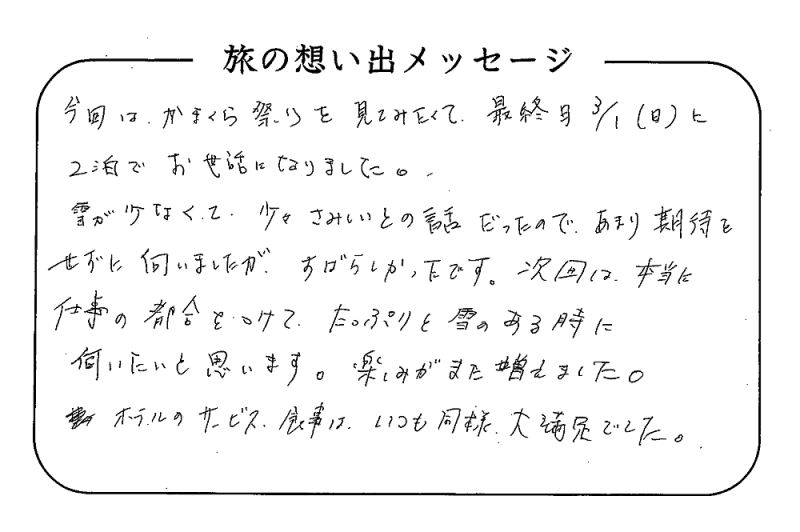 旅の想い出メッセージ
今回は、かまくら祭りを見てみたくて、最終日3/1(日)に
2泊でお世話になりました。
雪が少なくて、少々さみしいとの話だったので、あまり期待を
せずに伺いましたが、すばらしかったです。次回は、本当に
仕事の都合をつけて、たっぷりと雪のある時に
伺いたいと思います。楽しみがまた増えました。
ホテルのサービス、食事は、いつも同様、大満足でした。